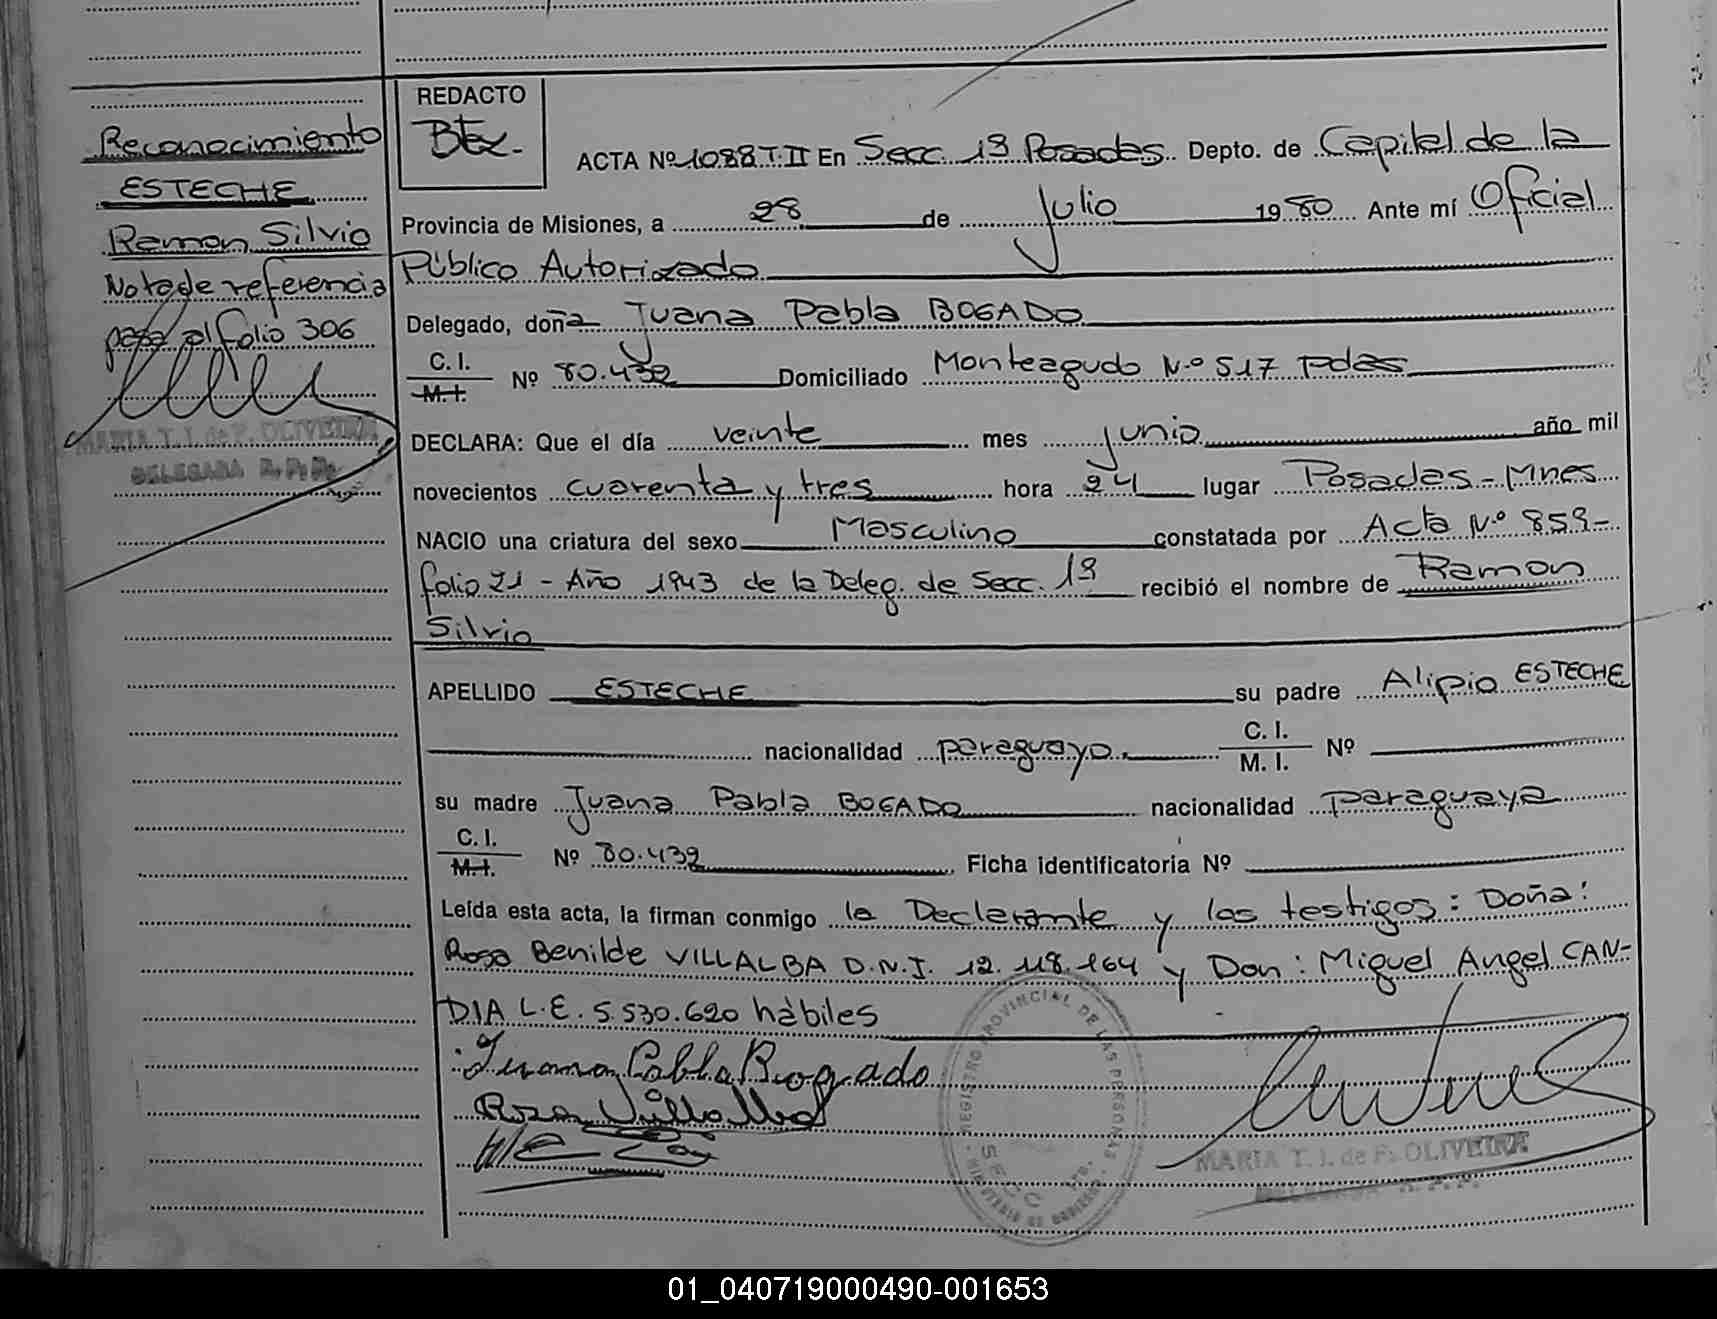 REDACTO
Btx.
Reconocimiento
ESTECHE
Ramon Silvio
Nota de referencia
pasa al folio 306
MARIA T. I. de F. OLIVEIRA
DELEGADA R. P. P.
ACTA Nº 1088 T. II En Secc. 1ª Posadas Depto. de Capital de la
Provincia de Misiones, a 28 de Julio 1980 Ante mí Oficial
Público Autorizado
Delegado, doña Juana Pabla BOGADO
C. I.
M. I. Nº 80.439 Domiciliado Monteagudo N.º 517 Pdas
DECLARA: Que el día veinte mes junio año mil
novecientos cuarenta y tres hora 24 lugar Posadas - Mnes
NACIO una criatura del sexo Masculino constatada por Acta N.º 859-
folio 21 - Año 1943 de la Deleg. de Secc. 1ª recibió el nombre de Ramon
Silvio
APELLIDO ESTECHE su padre Alipio ESTECHE
nacionalidad paraguayo C. I.
M. I. Nº
su madre Juana Pabla BOGADO nacionalidad paraguaya
C. I.
M. I. Nº 80.439 Ficha identificatoria Nº
Leída esta acta, la firman conmigo la Declarante y los testigos: Doña:
Rosa Benilde VILLALBA D.N.I. 12.118.164 y Don: Miguel Angel CAN-
DIA L.E. 5.530.620 hábiles
Juana Pabla Bogado
Rosa Villalba
REGISTRO PROVINCIAL DE LAS PERSONAS
MINISTERIO DE GOBIERNO
SECC
MARIA T. I. de F. OLIVEIRA
DELEGADA R. P. P.
01_040719000490-001653